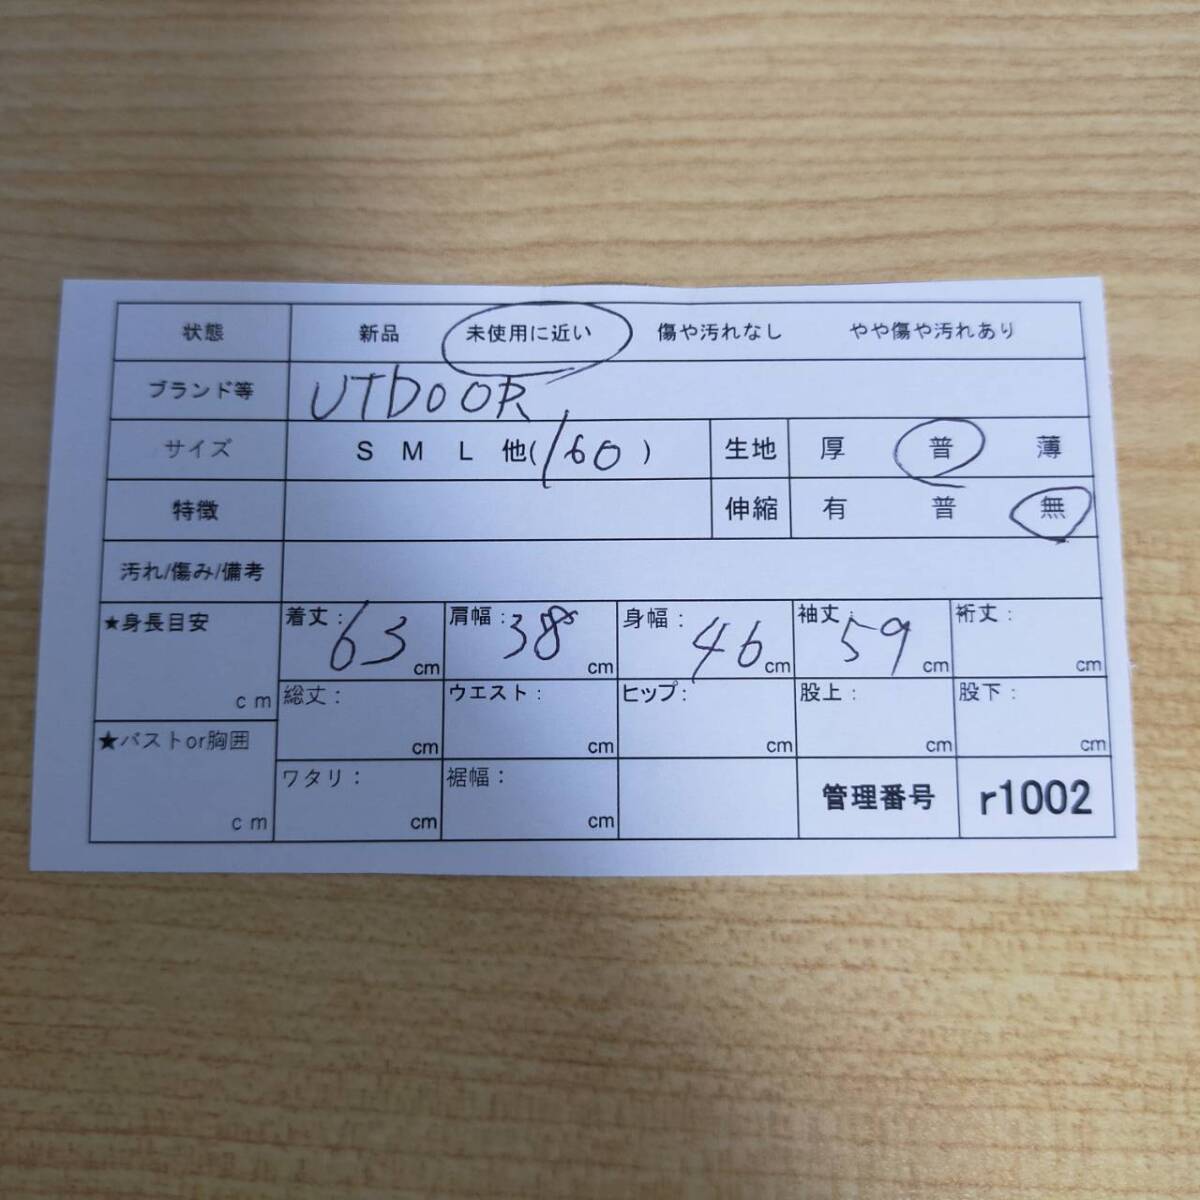 状態 新品 未使用に近い 傷や汚れなし やや傷や汚れあり
ブランド等 UTDOOR
サイズ S M L 他(160) 生地 厚 普 薄
特徴 伸縮 有 普 無
汚れ/傷み/備考
★身長目安 cm 着丈: 63 cm 肩幅: 38 cm 身幅: 46 cm 袖丈: 59 cm 裄丈: cm
総丈: cm ウエスト: cm ヒップ: cm 股上: cm 股下: cm
★バストor胸囲 cm ワタリ: cm 裾幅: cm 管理番号 r1002